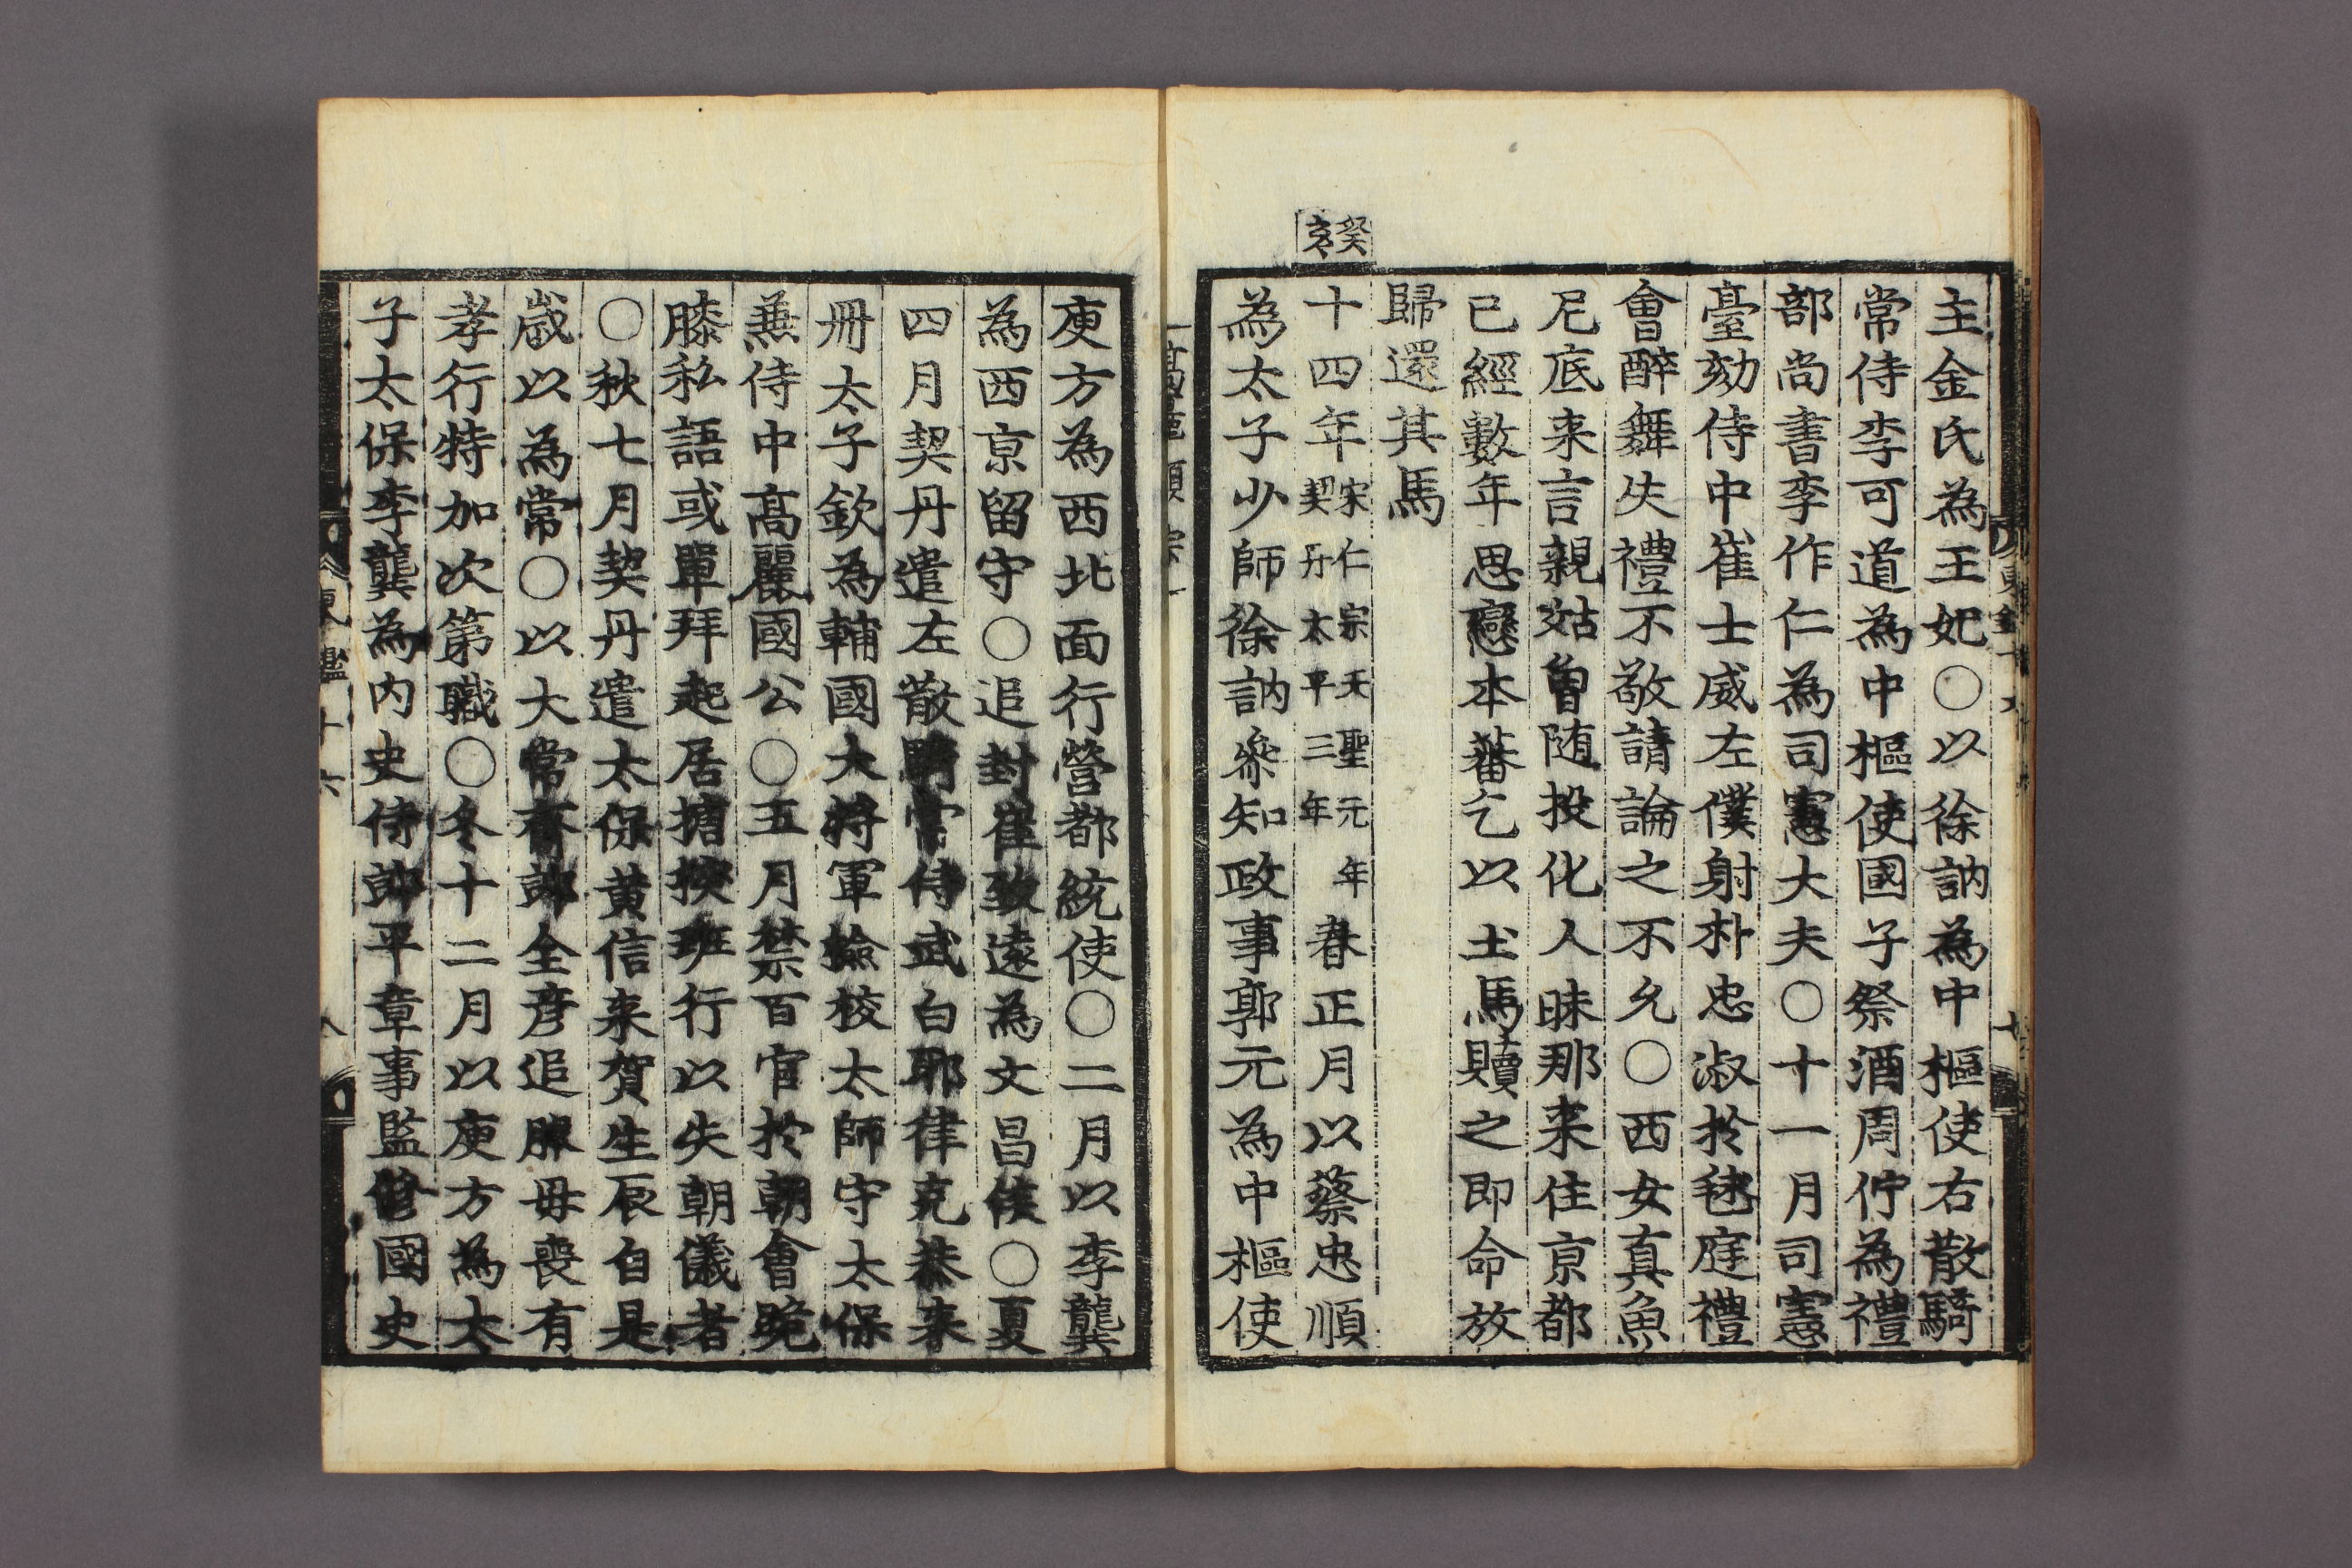 主金氏為王妃○以徐訥為中樞使右散騎
常侍李可道為中樞使國子祭酒周佇為禮
部尚書李作仁為司憲大夫○十一月司憲
臺劾侍中崔士威左僕射朴忠淑扵毬庭禮
會醉舞失禮不敬請論之不允○西女真魚
尼底来言親姑曽随投化人昧那来住京都
已經數年思戀本蕃乞以土馬贖之即命放
歸還其馬
癸亥
十四年宋仁宗天聖元年契丹太平三年春正月以蔡忠順
為太子少師徐訥叅知政事郭元為中樞使
庾方為西北面行營都統使○二月以李龔
為西京留守○追封崔致遠為文昌侯○夏
四月契丹遣左散騎常侍武白耶律克恭来
冊太子欽為輔國大將軍撿校太師守太保
兼侍中高麗國公○五月禁百官扵朝會跪
膝私語或單拜起居搪揬班行以失朝儀者
○秋七月契丹遣太保黄信来賀生辰自是
歲以為常○以大常齋郎全彦追服母喪有
孝行特加次第職○冬十二月以庾方為太
子太保李龔為内史侍郎平章事監修國史
東鑑十六
八